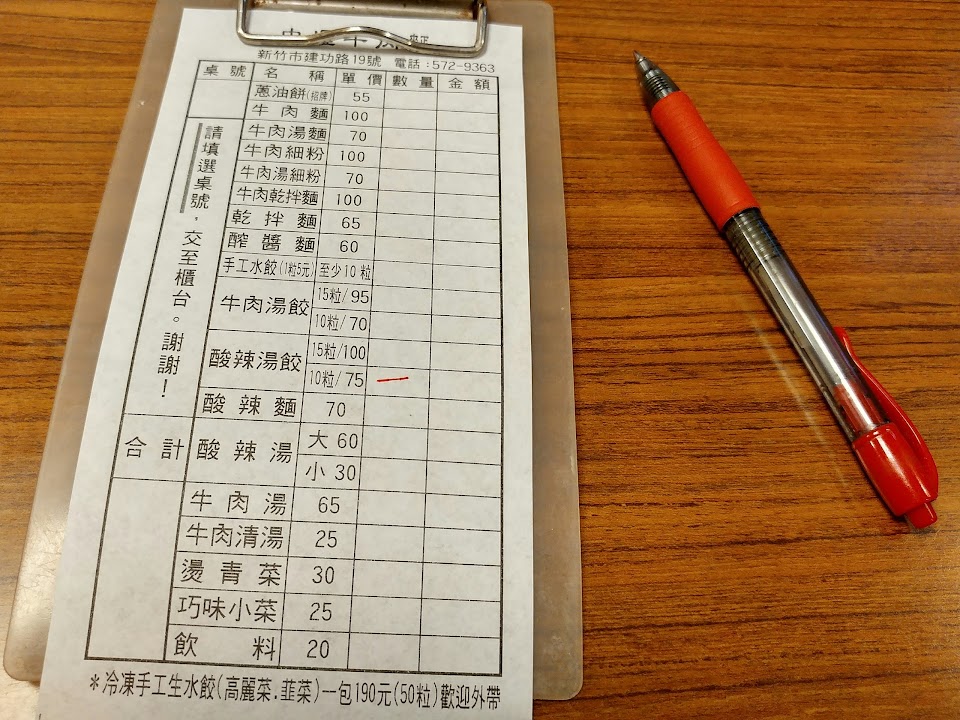 新竹市建功路19號 電話:572-9363
桌號 名稱 單價 數量 金額
蔥油餅(招牌) 55
牛肉麵 100
牛肉湯麵 70
牛肉細粉 100
牛肉湯細粉 70
牛肉乾拌麵 100
乾拌麵 65
醡醬麵 60
手工水餃(1粒5元) 至少10粒
牛肉湯餃 15粒/95
10粒/70
酸辣湯餃 15粒/100
10粒/75 一
酸辣麵 70
酸辣湯 大60
小30
牛肉湯 65
牛肉清湯 25
燙青菜 30
巧味小菜 25
飲料 20
請填選桌號,交至櫃台。謝謝!
合計
*冷凍手工生水餃(高麗菜.韮菜)一包190元(50粒)歡迎外帶